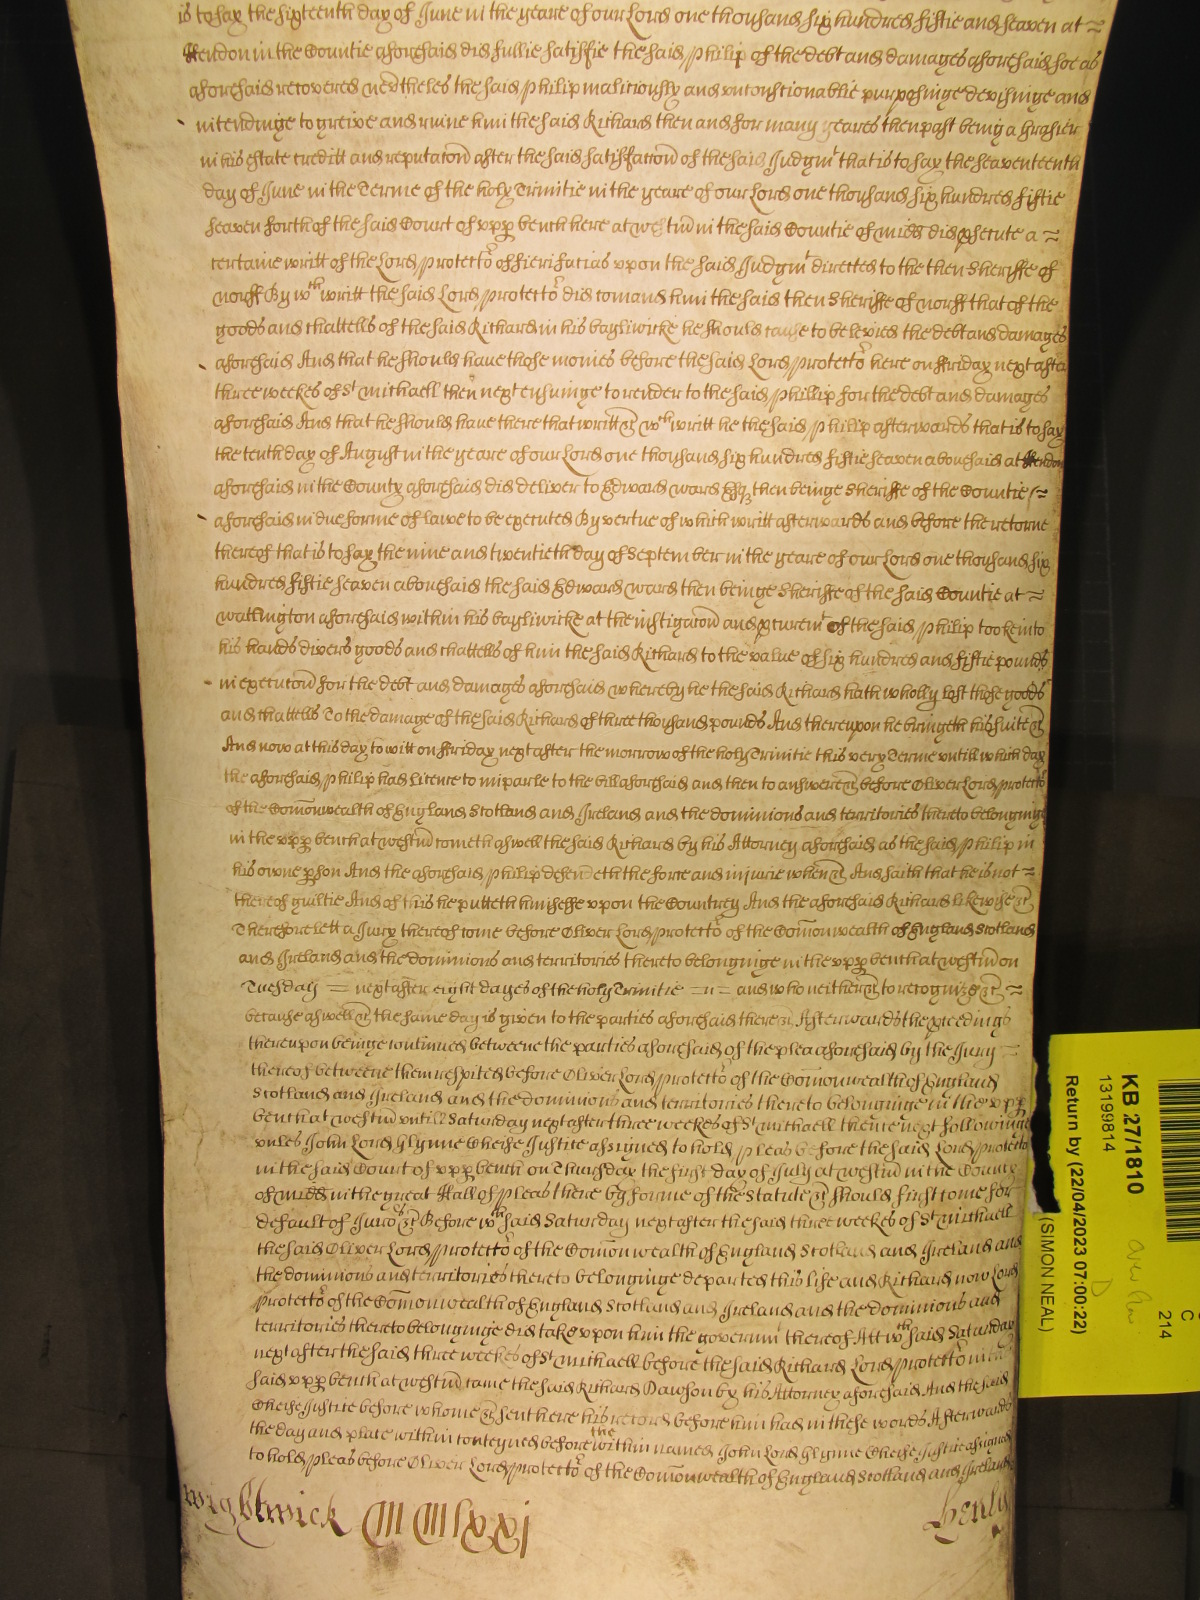 is to say the sixteenth day of June in the yeare of our Lord one thousand six hundred fiftie and seaven at
Hendon in the Countie aforesaid did fullie satisfie the said Philip of the debt and damages aforesaid soe as
aforesaid recovered nevtheles the said Philip maliciously and unconscionablie purposinge devisinge and
intendinge to greive and ruine him the said Richard then and for many yeares then past being a Grasier
in his estate creditt and reputacon after the said satisfaccon of the said Judgmt that is to say the seaventeenth
day of June in the Terme of the holy Trinitie in the yeare of our Lord one thousand six hundred fiftie
seaven forth of the said Court of upp bench here at westm in the said Countie of midd did psecute a
certaine writt of the Lord Protector of fieri facias upon the said Judgmt directed to the then Sheriffe of
Norff By wch writt the said Lord Protector did comand him the said then Sheriffe of Norff that of the
goods and chattells of the said Richard in his bayliwicke he should cause to be levied the debt and damages
aforesaid And that he should have those monies before the said Lord Protector here on ffriday next after
three weekes of St michaell then next ensuinge to render to the said Phillip for the debt and damages
aforesaid And that he should have there that writt &c wch writt he the said Philip afterwards that is to say
the tenth day of August in the yeare of our Lord one thousand six hundred fiftie seaven abovesaid at Hendon
aforesaid in the County aforesaid did deliver to Edward ward Esq then beinge Sheriffe of the Countie
aforesaid in due forme of lawe to be executed By vertue of which writt afterwards and before the retorne
thereof that is to say the nine and twentieth day of September in the yeare of our Lord one thousand six
hundred fiftie seaven abovesaid the said Edward ward then beinge Sheriffe of the said Countie at
wallington aforesaid within his bayliwicke at the instigacon and pcuremt of the said Philip tooke into
his hands divers goods and chattells of him the said Richard to the value of six hundred and fiftie pounds
in execucon for the debt and damages aforesaid whereby he the said Richard hath wholly lost those goods
and chattells To the damage of the said Richard of three thousand pounds And thereupon he bringeth his suite &c
And now at this day to witt on ffriday next after the morrow of the holy Trinitie this very Terme untill which day
the aforesaid Philip had licence to imparle to the bill aforesaid and then to answere &c before Oliver Lord Protector
of the Comonwealth of England Scotland and Ireland and the dominions and territories thereto belonginge
in the upp bench at westm cometh aswell the said Richard by his Attorney aforesaid as the said Philip in
his owne pson And the aforesaid Philip defendeth the force and injurie when &c And saith that he is not
thereof guiltie And of this he putteth himselfe upon the Countrey And the aforesaid Richard likewise &c
Therefore lett a Jury thereof come before Oliver Lord Protector of the Comonwealth of England Scotland
and Ireland and the dominions and territories thereto belonginge in the upp bench at westm on
Tuesday next after eight dayes of the holy Trinitie and who neither &c to recognize &c
because aswell &c the same day is given to the parties aforesaid there &c Afterwards the pceedings
thereupon beinge continued betweene the parties aforesaid of the plea aforesaid by the Jury
thereof betweene them respited before Oliver Lord Protector of the Comonwealth of England
Scotland and Ireland and the dominions and territories thereto belonginge in the upp
bench at westm untill Saturday next after three weekes of St michaell thence next followinge
unles John Lord Glynne Cheife Justice assigned to hold pleas before the said Lord Protector
in the said Court of upp bench on Thursday the first day of July at westm in the County
of midd in the great Hall of pleas there by forme of the statute &c should first come for
default of Jurors &c Before wch said Saturday next after the said three weekes of St michaell
the said Oliver Lord Protector of the Comonwealth of England Scotland and Ireland and
the dominions and territories thereto belonginge departed this life and Richard now Lord
Protector of the Comonwealth of England Scotland and Ireland and the dominions and
territories thereto belonginge did take upon him the governmt thereof Att wch said Saturday
next after the said three weekes of St michaell before the said Richard Lord Protector in the
said upp bench at westm came the said Richard Dawson by his Attorney aforesaid And the said
Cheife Justice before whome &c sent here his record before him had in these words Afterwards
the day and place within conteyned before the within named John Lord Glynne Cheife Justice assigned
to hold pleas before Oliver Lord Protector of the Comonwealth of England Scotland and Ireland
Wightwick
Henly
KB 27/1810
13199814
Return by (22/04/2023 07:00:22)
(SIMON NEAL)
C
214